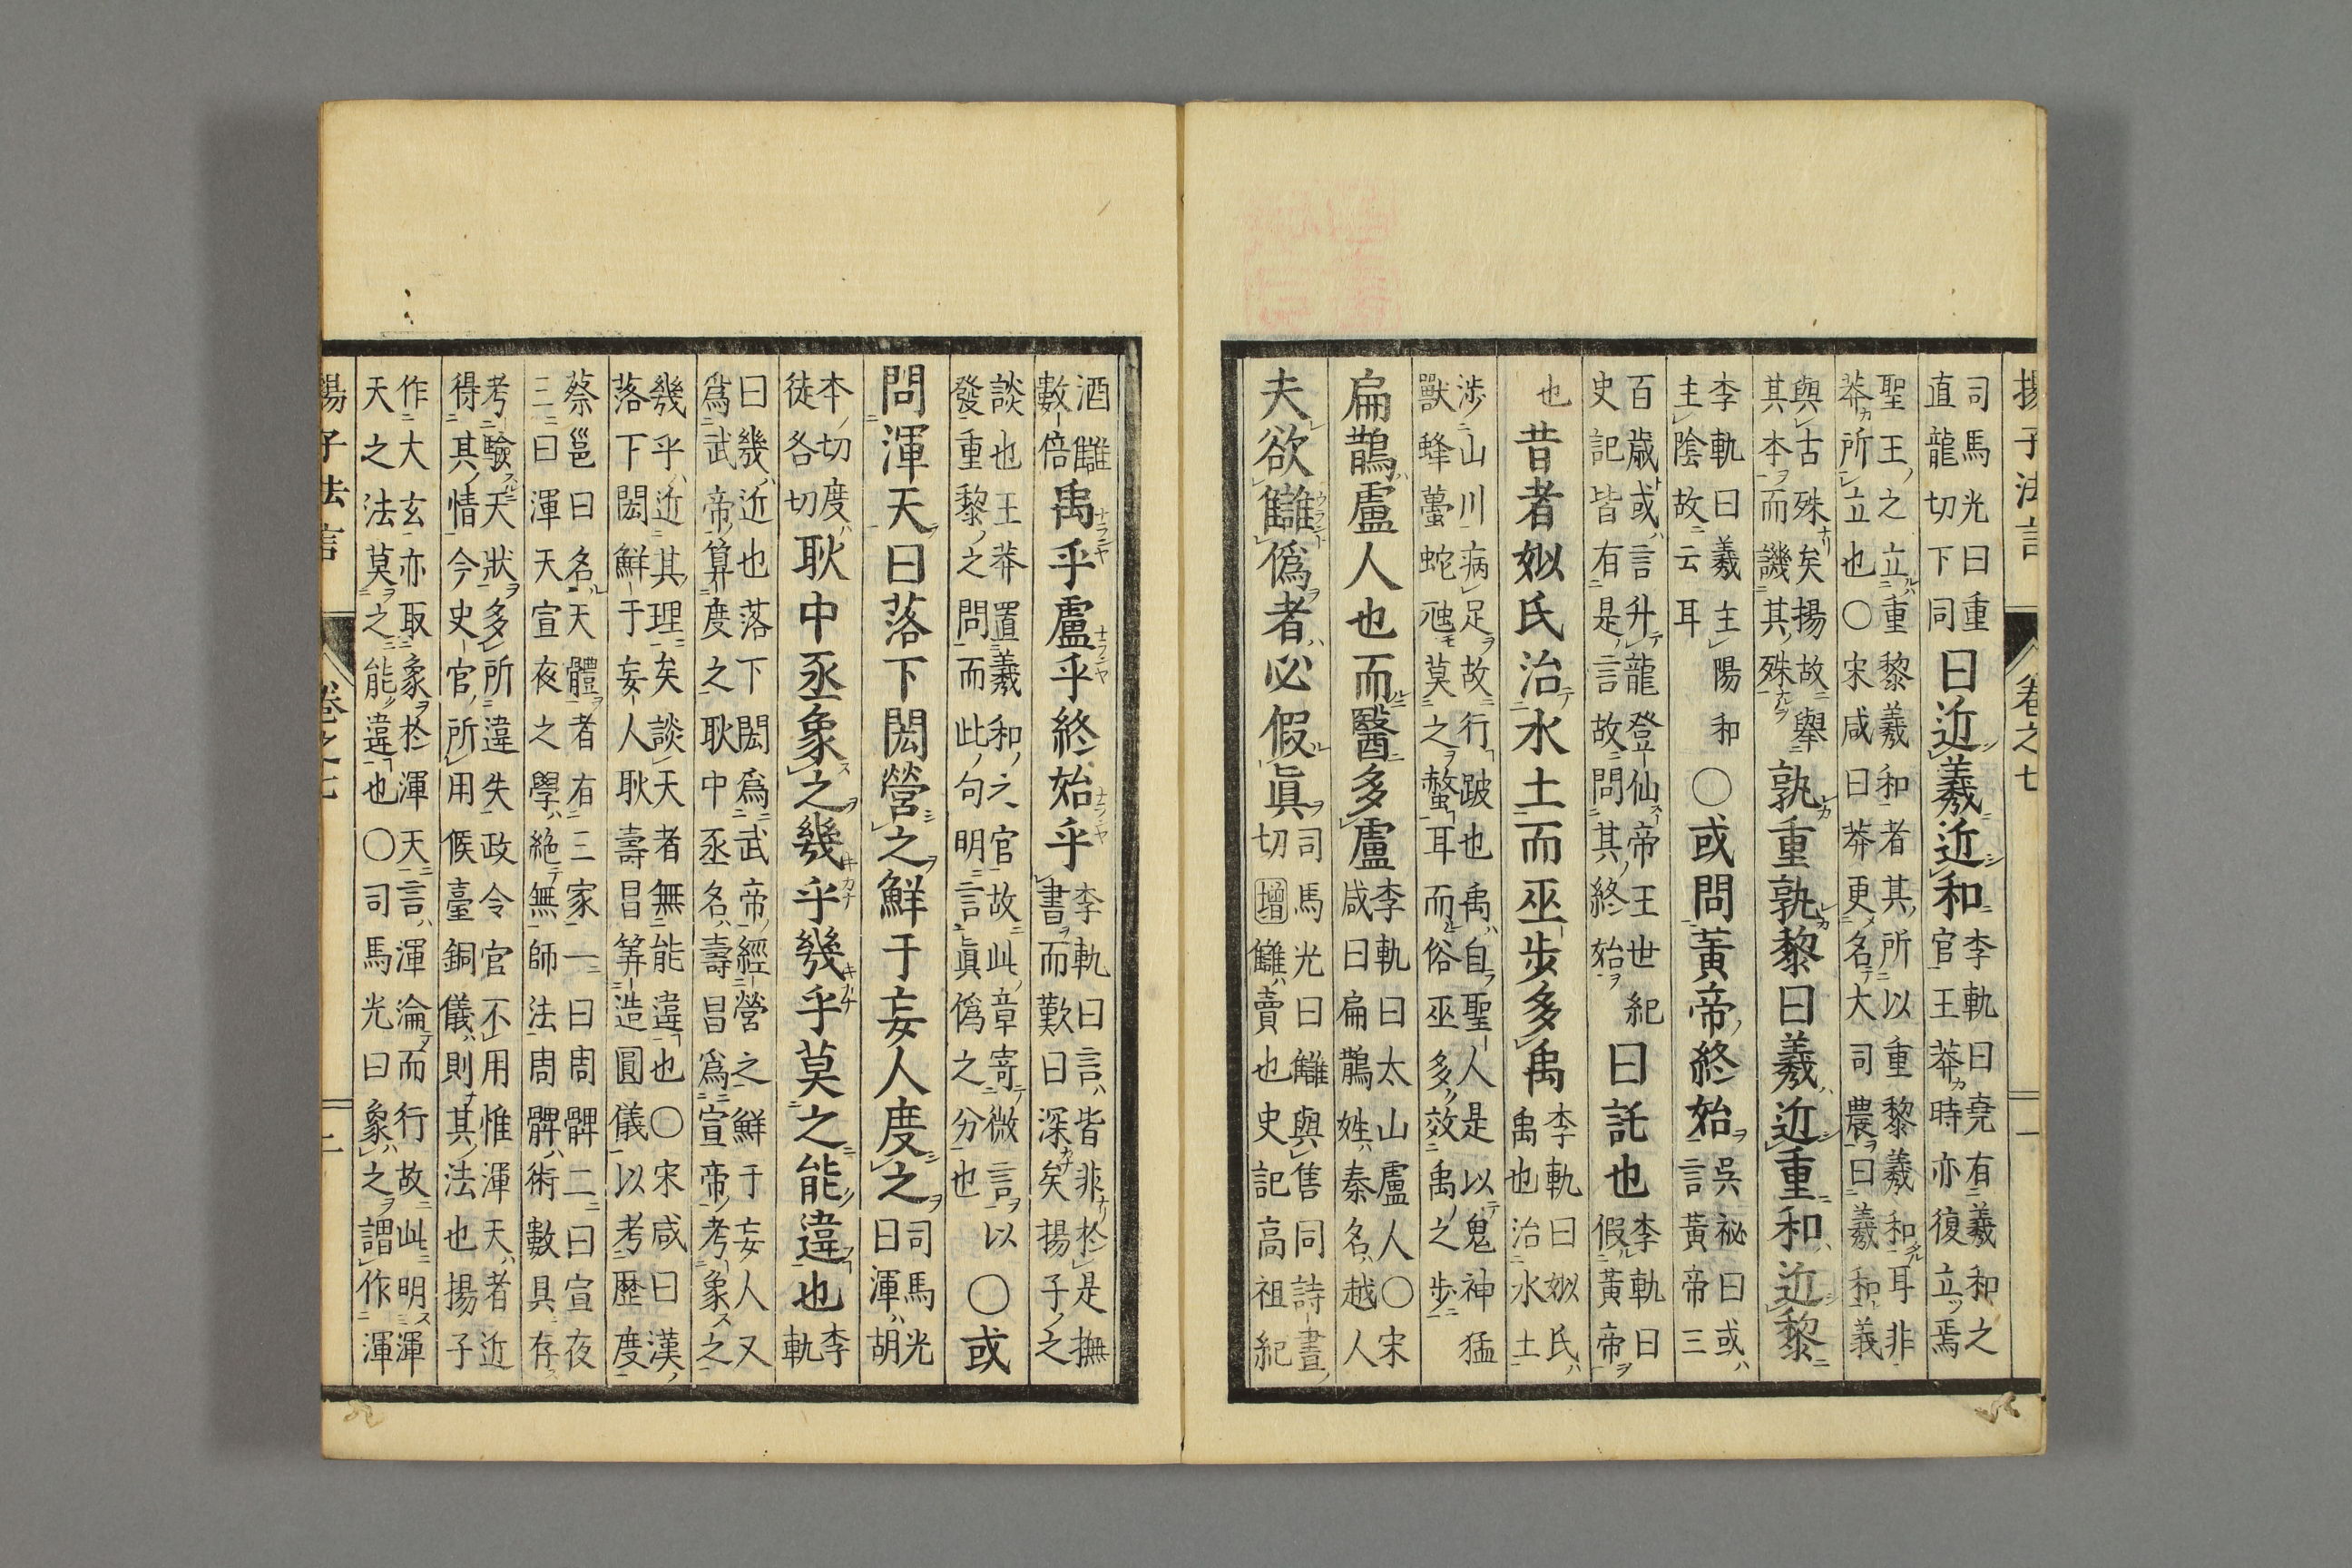 揚子法言 卷之七 一
司馬光曰重直龍切下同曰近羲近和李軌曰堯有羲和之官王莽時亦復立焉
聖王之立重黎羲和者其所以重黎羲和耳非莽所立也○宋咸曰莽更名大司農曰羲和義
與古殊矣揚故舉其本而譏其殊孰重孰黎曰羲近重和近黎
李軌曰羲主陽和主陰故云耳○或問黃帝終始吳祕曰或言黃帝三
百歲或言升龍登仙帝王世紀史記皆有是言故問其終始曰託也李軌曰假黃帝
也昔者姒氏治水土而巫步多禹李軌曰姒氏禹也治水土
涉山川病足故行跛也禹自聖人是以鬼神猛獸蜂蠆蛇虺莫之螫耳而俗巫多效禹之步
扁鵲盧人也而醫多盧李軌曰太山盧人○宋咸曰扁鵲姓秦名越人
夫欲讎僞者必假眞司馬光曰讎與售同詩晝切增讎賣也史記高祖紀
酒讎數倍禹乎盧乎終始乎李軌曰言皆非於是撫書而歎曰深矣揚子之
談也王莽置羲和之官故此章寄微言以發重黎之問而此句明言眞僞之分也○或
問渾天曰落下閎營之鮮于妄人度之司馬光曰渾胡
本切度徒各切耿中丞象之幾乎幾乎莫之能違也李軌
曰幾近也落下閎爲武帝經營之鮮于妄人又爲武帝算度之耿中丞名壽昌爲宣帝考象之
幾乎近其理矣談天者無能違也○宋咸曰漢落下閎鮮于妄人耿壽昌筭造圓儀以考歷度
蔡邕曰名天體者有三家一曰周髀二曰宣夜三曰渾天宣夜之學絶無師法周髀術數具存
考驗天狀多所違失政令官不用惟渾天者近得其情今史官所用候臺銅儀則其法也揚子
作大玄亦取象於渾天言渾淪而行故此明渾天之法莫之能違也○司馬光曰象之謂作渾
揚子法言 卷之七 二